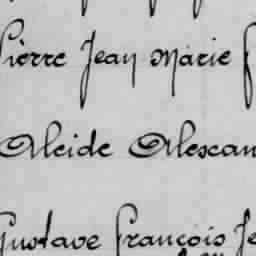 Pierre Jean Marie
Alcide Alexan
Gustave François Je